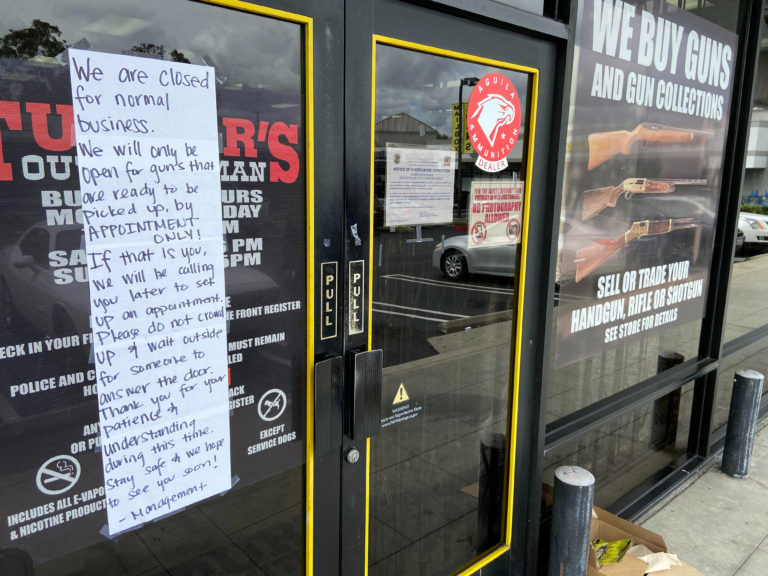 We are closed
for normal
business.
We will only be
open for guns that
are ready to be
picked up, by
APPOINTMENT
ONLY!
If that is you,
we will be calling
you later to set
up an appointment.
Please do not crowd
up & wait outside
for someone to
answer the door.
Thank you for your
patience &
understanding
during this time.
Stay safe & we hope
to see you soon!
- Management
TU R'S
OUT MAN
BU URS
MO DAY
M
SA PM
SU 5PM
E FRONT REGISTER
ECK IN YOUR FI MUST REMAIN
LED
POLICE AND C
HO ACK
GISTER
AN
OR PU
EXCEPT
SERVICE DOGS
INCLUDES ALL E-VAPO
& NICOTINE PRODUCT
PULL
PULL
AGUILA
AMMUNITION
DEALER
FOR THE SAFETY, SECURITY AND
PRIVACY OF OUR CUSTOMERS
NO PHOTOGRAPHY
ALLOWED
WARNING
WE BUY GUNS
AND GUN COLLECTIONS
SELL OR TRADE YOUR
HANDGUN, RIFLE OR SHOTGUN
SEE STORE FOR DETAILS